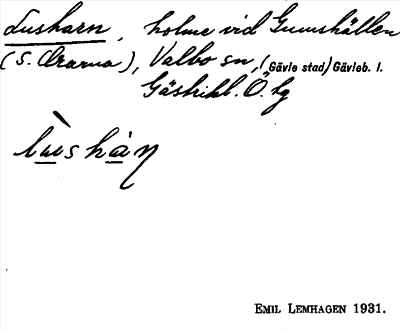 Lusharn, holme vid Gunnshällen
(S. Orarna), Valbo sn, (Gävle stad) Gävleb. l.
Gästrikl. Ö. tg
lùshàn
EMIL LEMHAGEN 1931.